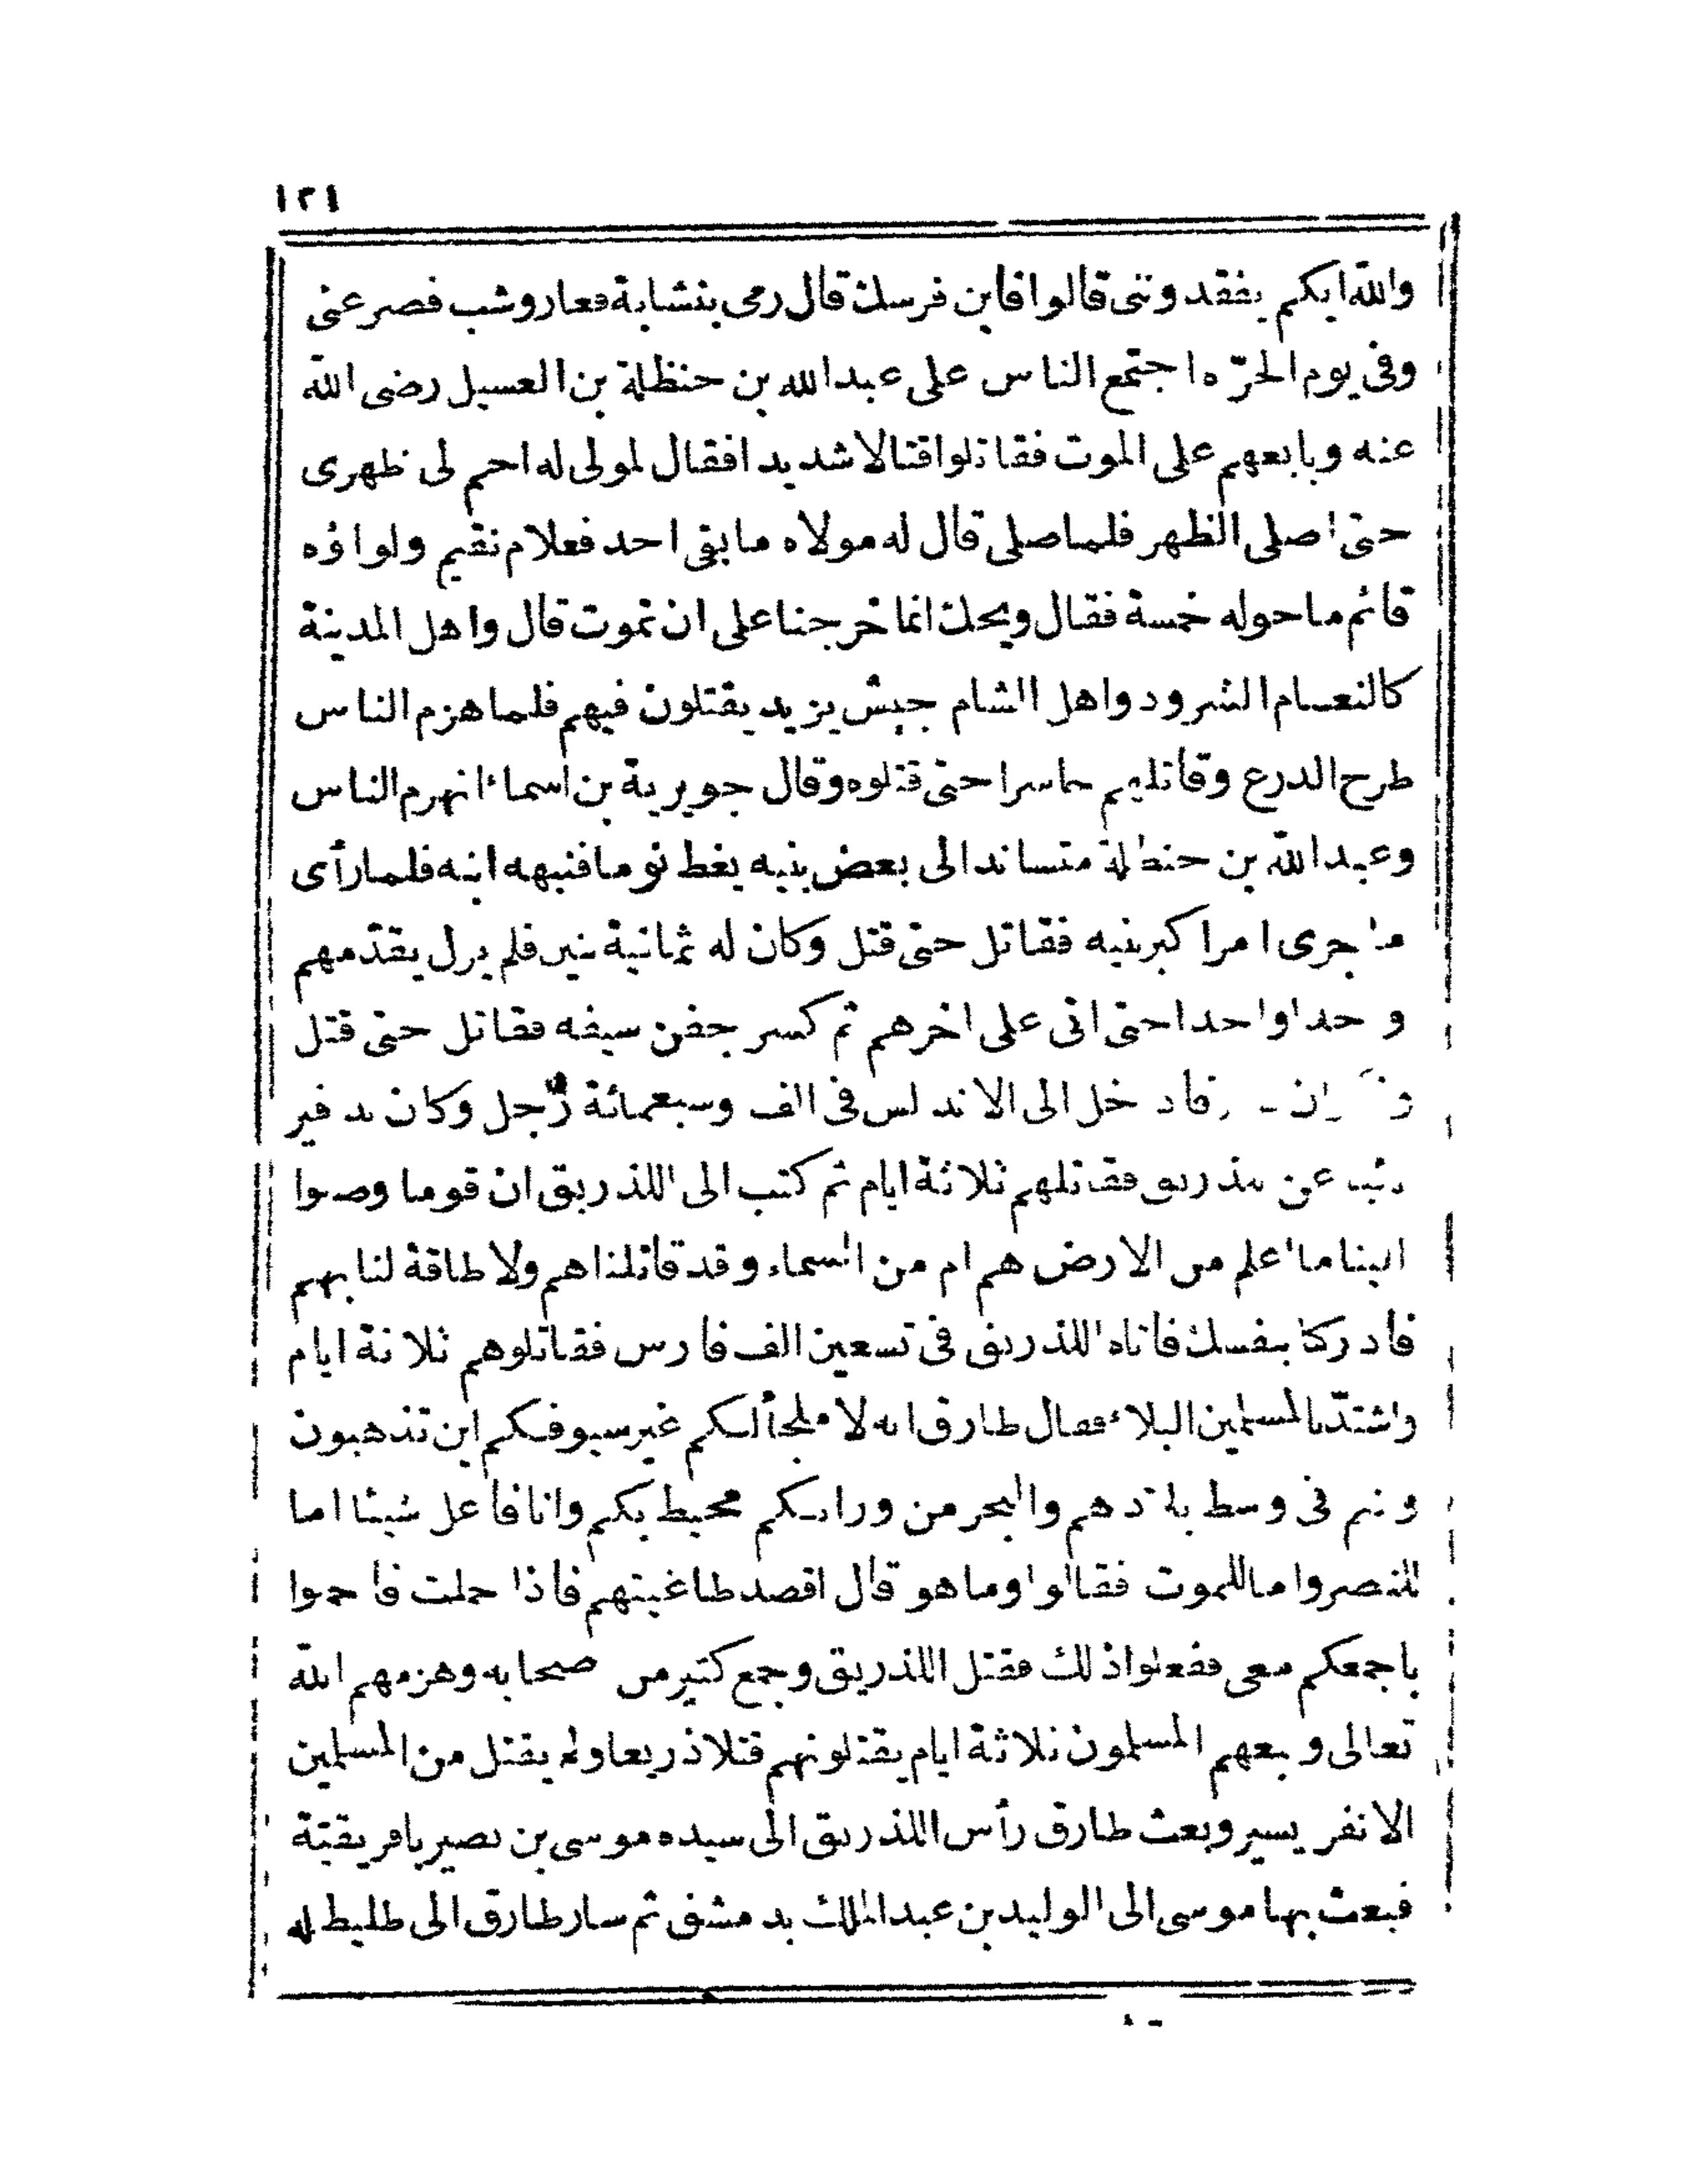 ١٢١
والله ايكم يفقدوننى قالوا فاين فرسك قال رمى بنشابة فعار وشب فصرعنى
وفى يوم الحرّة اجتمع الناس على عبد الله بن حنظلة بن العسيل رضى الله
عنه وبايعهم على الموت فقاتلوا قتالا شديدا فقال لمولى له احم لى ظهرى
حتى اصلى الظهر فلما صلى قال له مولاه ما بقى احد فعلام نقيم ولواؤه
قائم ما حوله خمسة فقال ويحك انما خرجنا على ان نموت قال واهل المدينة
كالنعام الشرود واهل الشام جيش يزيد يقتلون فيهم فلما هزم الناس
طرح الدرع وقاتلهم حاسرا حتى قتلوه وقال جويرية بن اسماء انهزم الناس
وعبد الله بن حنظلة متساندا الى بعض بنيه يغط نوما فنبهه ابنه فلما رأى
ما جرى امر اكبر بنيه فقاتل حتى قتل وكان له ثمانية بنين فلم يزل يقدّمهم
واحدا واحدا حتى اتى على اخرهم ثم كسر جفن سيفه فقاتل حتى قتل
دخل الى الاندلس فى الف وسبعمائة رجل وكان تدفير
عن لذريق فقاتلهم ثلاثة ايام ثم كتب الى اللذريق ان قوما وصلوا
الينا ما اعلم من الارض هم ام من السماء وقد قاتلناهم ولا طاقة لنا بهم
فادركنا بنفسك فاتاه اللذريق فى تسعين الف فارس فقاتلوهم ثلاثة ايام
واشتدّ بالمسلمين البلاء فقال طارق انه لا ملجأ لكم غير سيوفكم اين تذهبون
وانتم فى وسط بلادهم والبحر من ورائكم محيط بكم وانا فاعل شيئا اما
للنصر واما للموت فقالوا وما هو قال اقصد طاغيتهم فاذا حملت فاحملوا
باجمعكم معى ففعلوا ذلك فقتل اللذريق وجمع كثير من اصحابه وهزمهم الله
تعالى وتبعهم المسلمون ثلاثة ايام يقتلونهم قتلا ذريعا ولم يقتل من المسلمين
الا نفر يسير وبعث طارق رأس اللذريق الى سيده موسى بن نصير بافريقيّة
فبعث بها موسى الى الوليد بن عبد الملك بدمشق ثم سار طارق الى طليطله